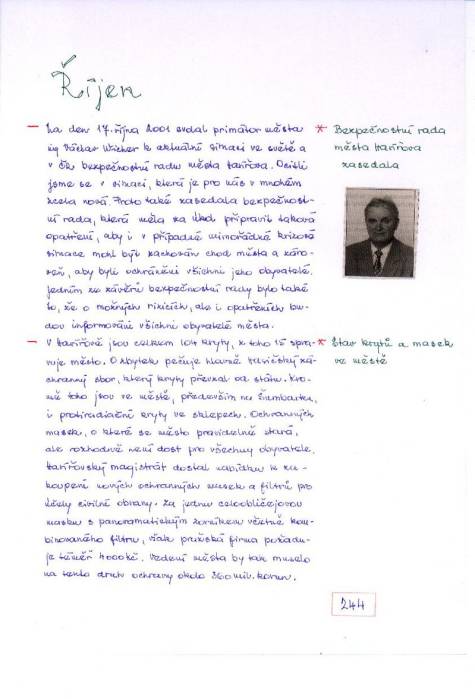 Říjen
Na den 17. října 2001 svolal primátor města
ing Václav Wicher k aktuální situaci ve světě a
v ČR bezpečnostní radu města Karviná. Ocitli
jsme se v situaci, která je pro nás v mnohém
zcela nová. Proto také zasedala bezpečnost-
ní rada, která měla za úkol připravit taková
opatření, aby i v případné mimořádné krizové
situace mohl být zachován chod města a záro-
veň, aby byli ochráněni všichni jeho obyvatelé.
Jedním ze závěrů bezpečnostní rady bylo také
to, že o možných rizicích, ale i opatřeních bu-
dou informováni všichni obyvatelé města.
V Karviné jsou celkem 104 kryty, z toho 15 spra-
vuje město. O zbytek pečuje hlavně hasičský zá-
chranný sbor, který kryty převzal od státu. Kro-
mě toho jsou ve městě, především na
i protiradiační kryty ve sklepech. Ochranných
masek, o které se město pravidelně stará,
ale rozhodně není dost pro všechny obyvatele.
magistrát dostal nabídku k za-
koupení nových ochranných masek a filtrů pro
účely civilní obrany. Za jednu celoobličejovou
masku s panoramatickým zorníkem včetně kom-
binovaného filtru, však pražská firma požadu-
je téměř 4000Kč. Vedení města by tak muselo
na tento druh ochrany okolo 360 mil. korun.
* Bezpečnostní rada
města
zasedala
* Stav krytů a masek
ve městě
244